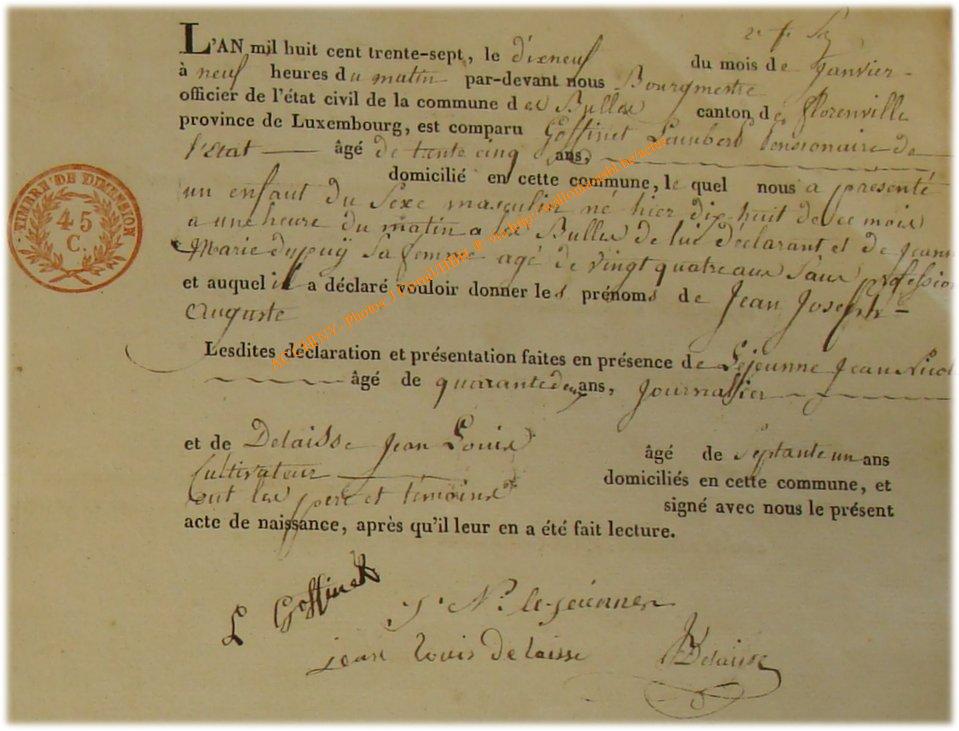 L'AN mil huit cent trente-sept, le dixneuf du mois de Janvier
à neuf heures du matin par-devant nous Bourgmestre
officier de l'état civil de la commune des Bulles canton de florenville
province de Luxembourg, est comparu Goffinet Lambert Pensionaire de
l'Etat âgé de trente cinq ans,
domicilié en cette commune, le quel nous a presenté
un enfant du Sexe masculin né hier dix huit de ce mois
a une heure du matin a les Bulles de lui déclarant et de Jeanne
Marie dupuij Sa femme agé de vingt quatre ans Sans profession
et auquel il a déclaré vouloir donner les prénoms de Jean Joseph
Auguste
Lesdites déclaration et présentation faites en présence de Lejeunne Jean Nicol
âgé de quarante deux ans, Journallier
et de Delaisse Jean Louis âgé de Septante un ans
Cultivateur domiciliés en cette commune, et
ont les pere et témoins signé avec nous le présent
acte de naissance, après qu'il leur en a été fait lecture.
TIMBRE DE DIMENSION
45
C.
L Goffinet
J. N. le jeunne
jean louis delaisse
Delaisse